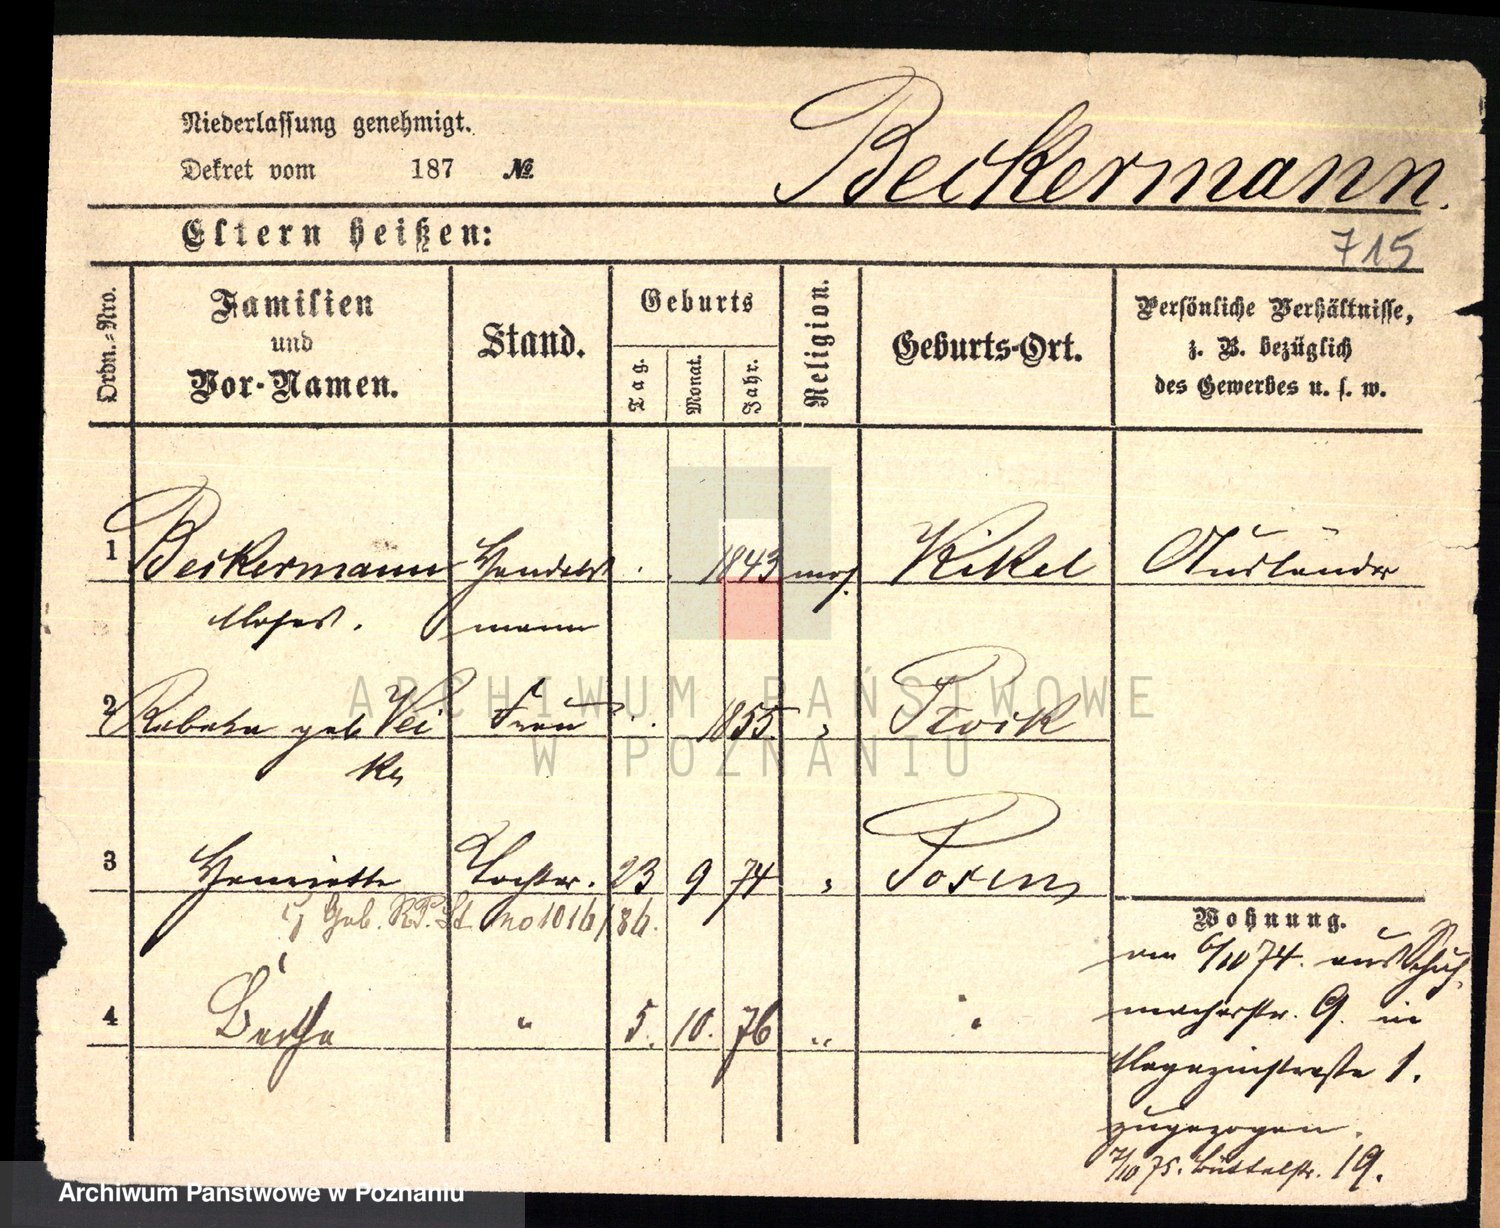 Niederlassung genehmigt.
Dekret vom 187 №
Beckermann.
Eltern heißen:
715
Ordn.-Nro.
Familien
und
Vor-Namen.
Stand.
Geburts
Tag.
Monat.
Jahr.
Religion.
Geburts-Ort.
Persönliche Verhältnisse,
z. B. bezüglich
des Gewerbes u. s. w.
1 Beckermann Handels 1843 mos. Kikel Ausländer
Moses. mann
2 Rebeka geb Frau 1855 "
3 Henriette Tochter. 23 9 74 " Posen
Geb. No 1016/86.
4 Bertha " 5. 10. 76 " "
Wohnung.
am 6/10 74. aus Schuh-
macherstr. 9. in
Magazinstraße 1.
zugezogen.
7/10 75. Büttelstr. 19.
ARCHIWUM PAŃSTWOWE
W POZNANIU
Archiwum Państwowe w Poznaniu